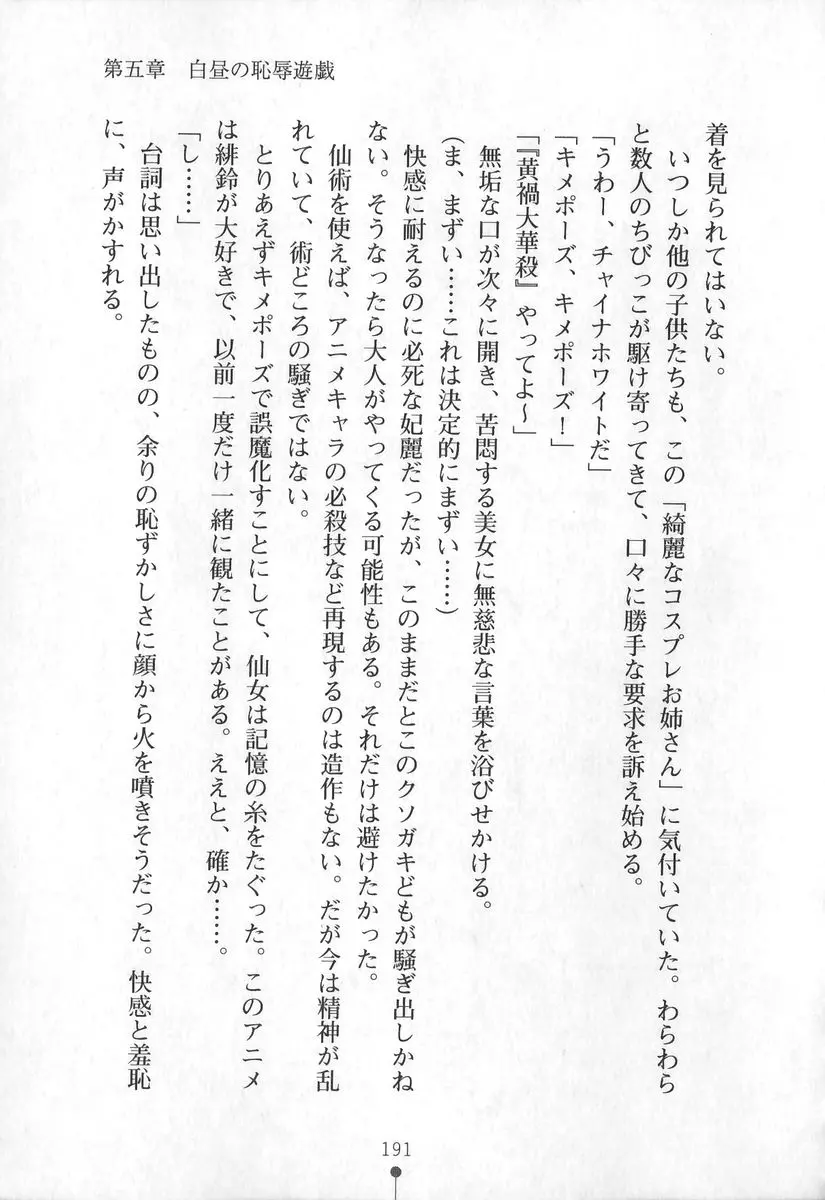 第五章　白昼の恥辱遊戯
着を見られてはいない。
　いつしか他の子供たちも、この「綺麗なコスプレお姉さん」に気付いていた。わらわら
と数人のちびっこが駆け寄ってきて、口々に勝手な要求を訴え始める。
「うわー、チャイナホワイトだ」
「キメポーズ、キメポーズ！」
「『黄禍大華殺』やってよ～」
　無垢な口が次々に開き、苦悶する美女に無慈悲な言葉を浴びせかける。
（ま、まずい……これは決定的にまずい……）
　快感に耐えるのに必死な妃麗だったが、このままだとこのクソガキどもが騒ぎ出しかね
ない。そうなったら大人がやってくる可能性もある。それだけは避けたかった。
　仙術を使えば、アニメキャラの必殺技など再現するのは造作もない。だが今は精神が乱
れていて、術どころの騒ぎではない。
　とりあえずキメポーズで誤魔化すことにして、仙女は記憶の糸をたぐった。このアニメ
は緋鈴が大好きで、以前一度だけ一緒に観たことがある。ええと、確か……。
「し……」
　台詞は思い出したものの、余りの恥ずかしさに顔から火を噴きそうだった。快感と羞恥
に、声がかすれる。
191